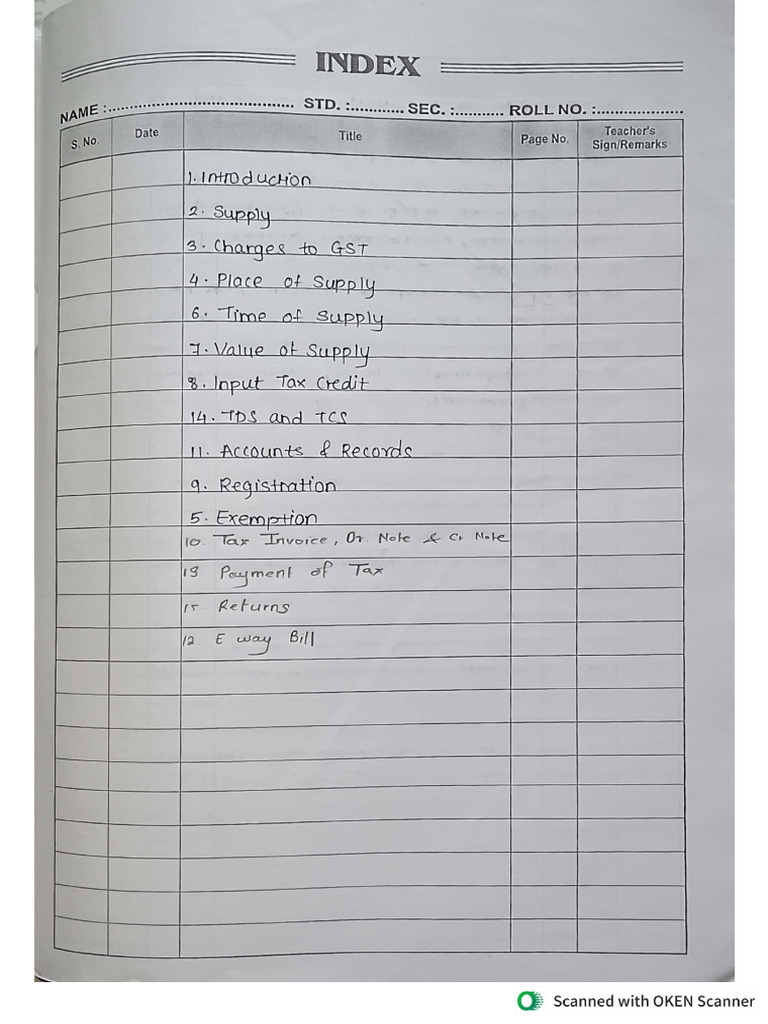 INDEX
NAME :....................................... STD. :............ SEC. :........... ROLL NO. :...................
S. No. Date Title Page No. Teacher's Sign/Remarks
1. Introduction
2. Supply
3. Charges to GST
4. Place of Supply
6. Time of Supply
7. Value of Supply
8. Input Tax Credit
14. TDS and TCS
11. Accounts & Records
9. Registration
5. Exemption
10. Tax Invoice, Dr. Note & Cr Note
13 Payment of Tax
15 Returns
12 E way Bill
Scanned with OKEN Scanner